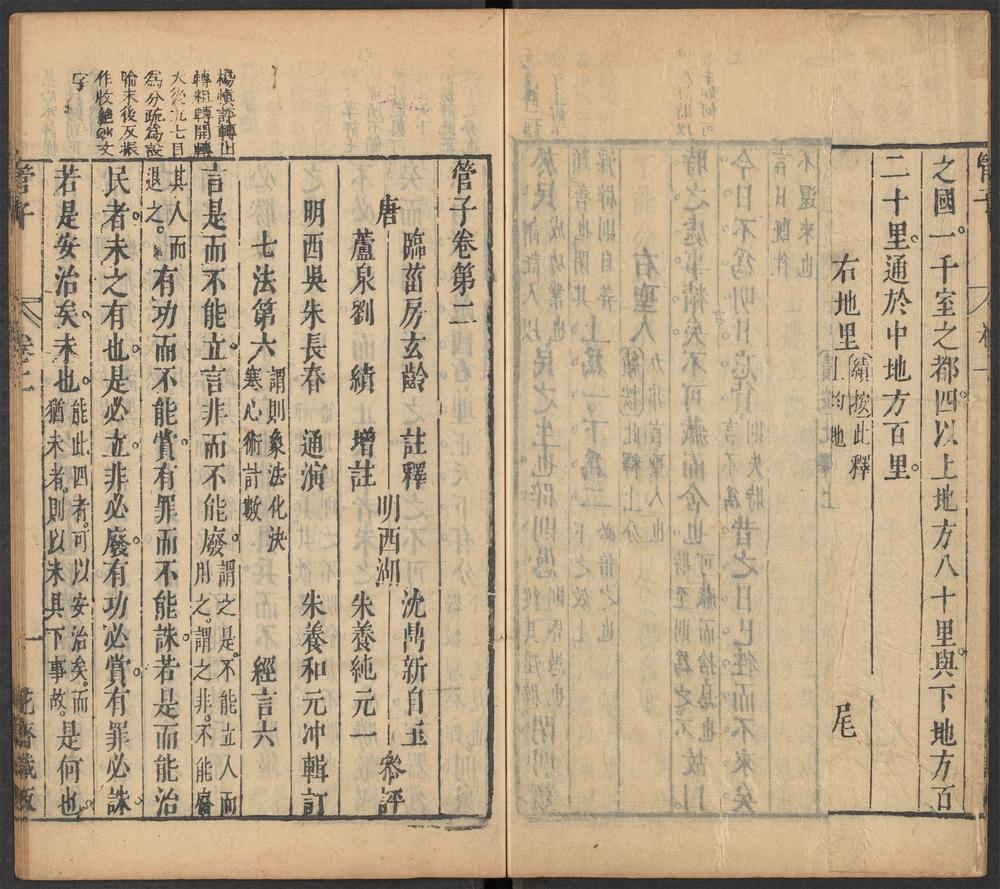 之國一千室之都四以上地方八十里與下地方百
二十里通於中地方百里
右地里 績按此釋上均地
尾
管子卷第二
唐 臨菑房玄齡 註釋
蘆泉劉 績 增註
明西吳朱長春 通演
明西湖 沈鼎新自玉
朱養純元一 參評
朱養和元冲輯訂
七法第六 謂則象法化決塞心術計數 經言六
言是而不能立言非而不能廢 謂之是不能立人而用之謂之非不能廢
其人而退之 有功而不能賞有罪而不能誅若是而能治
民者未之有也是必立非必廢有功必賞有罪必誅
若是安治矣未也 能此四者可以安治矣而猶未者則以未具下事故 是何也
楊慎評轉止
轉粗轉開轉
大後九七目
為分疏為設
喻末後反振
作收絶妙文
字
管子
卷二
一
花齋藏板